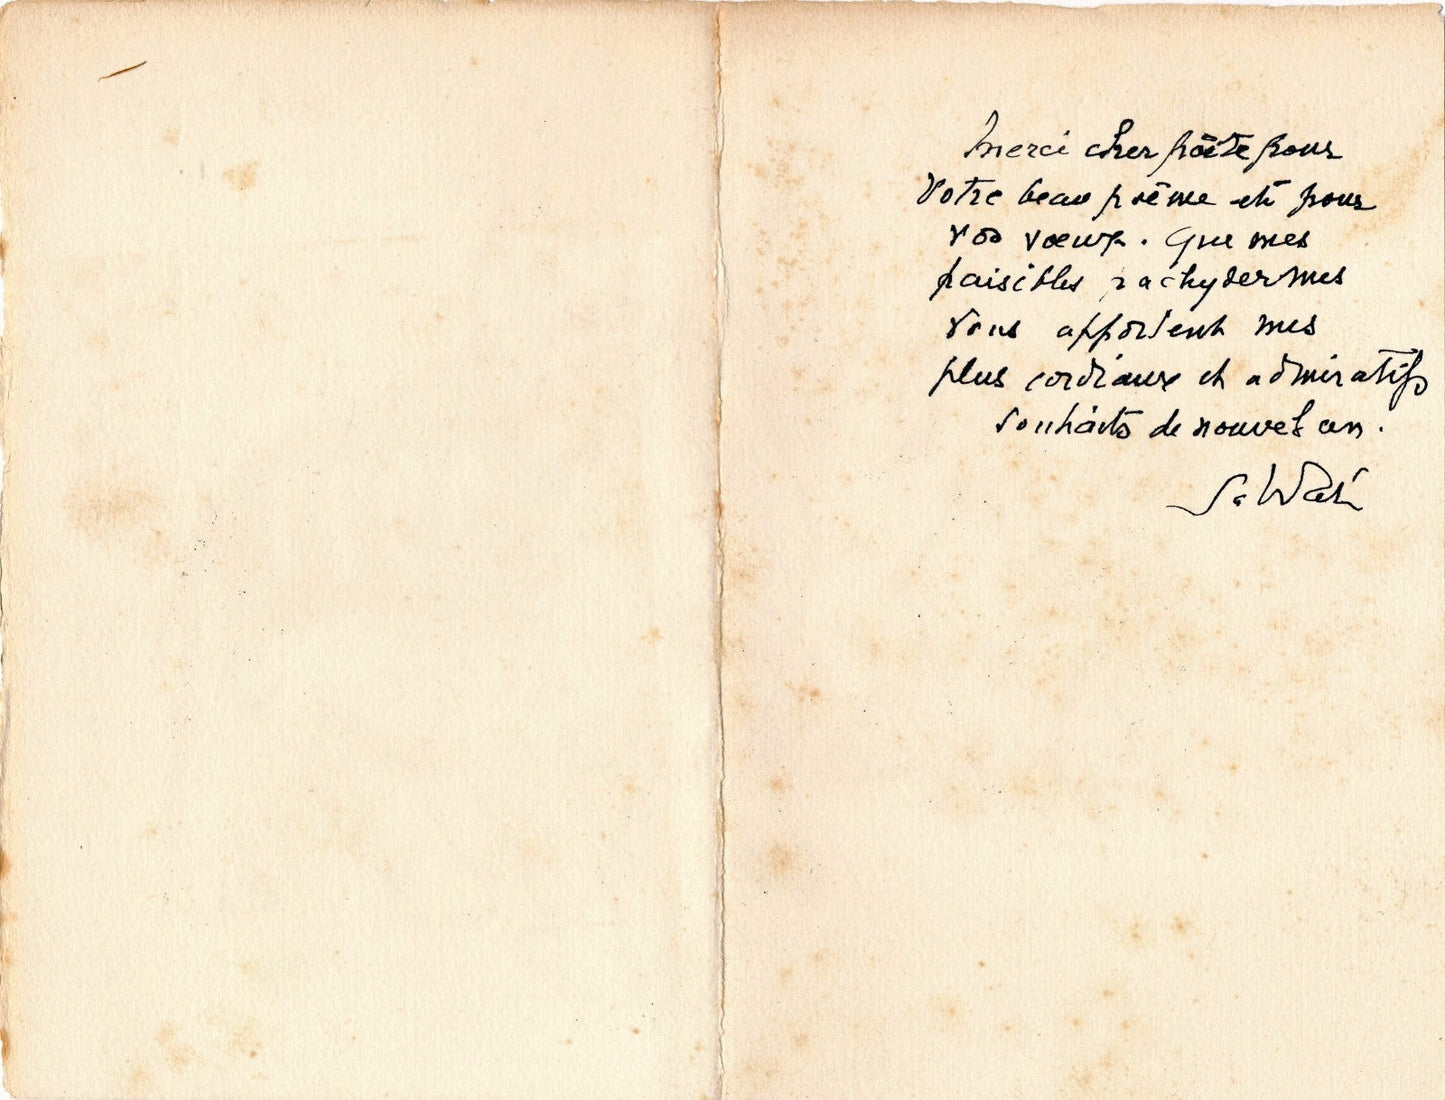 Merci cher poète pour
votre beau poème et pour
vos vœux. Que mes
paisibles pachydermes
vous apportent mes
plus cordiaux et admiratifs
souhaits de nouvel an.